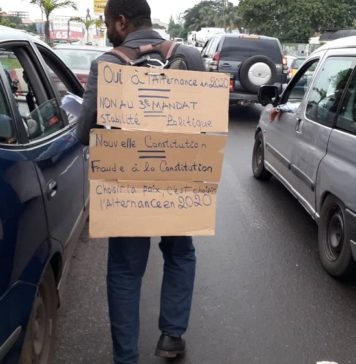 Oui à l'Alternance en 2020
NON AU 3è MANDAT
Stabilité Politique
Nouvelle Constitution
Fraude à la Constitution
Choisir la paix, c'est choisir
l'Alternance en 2020